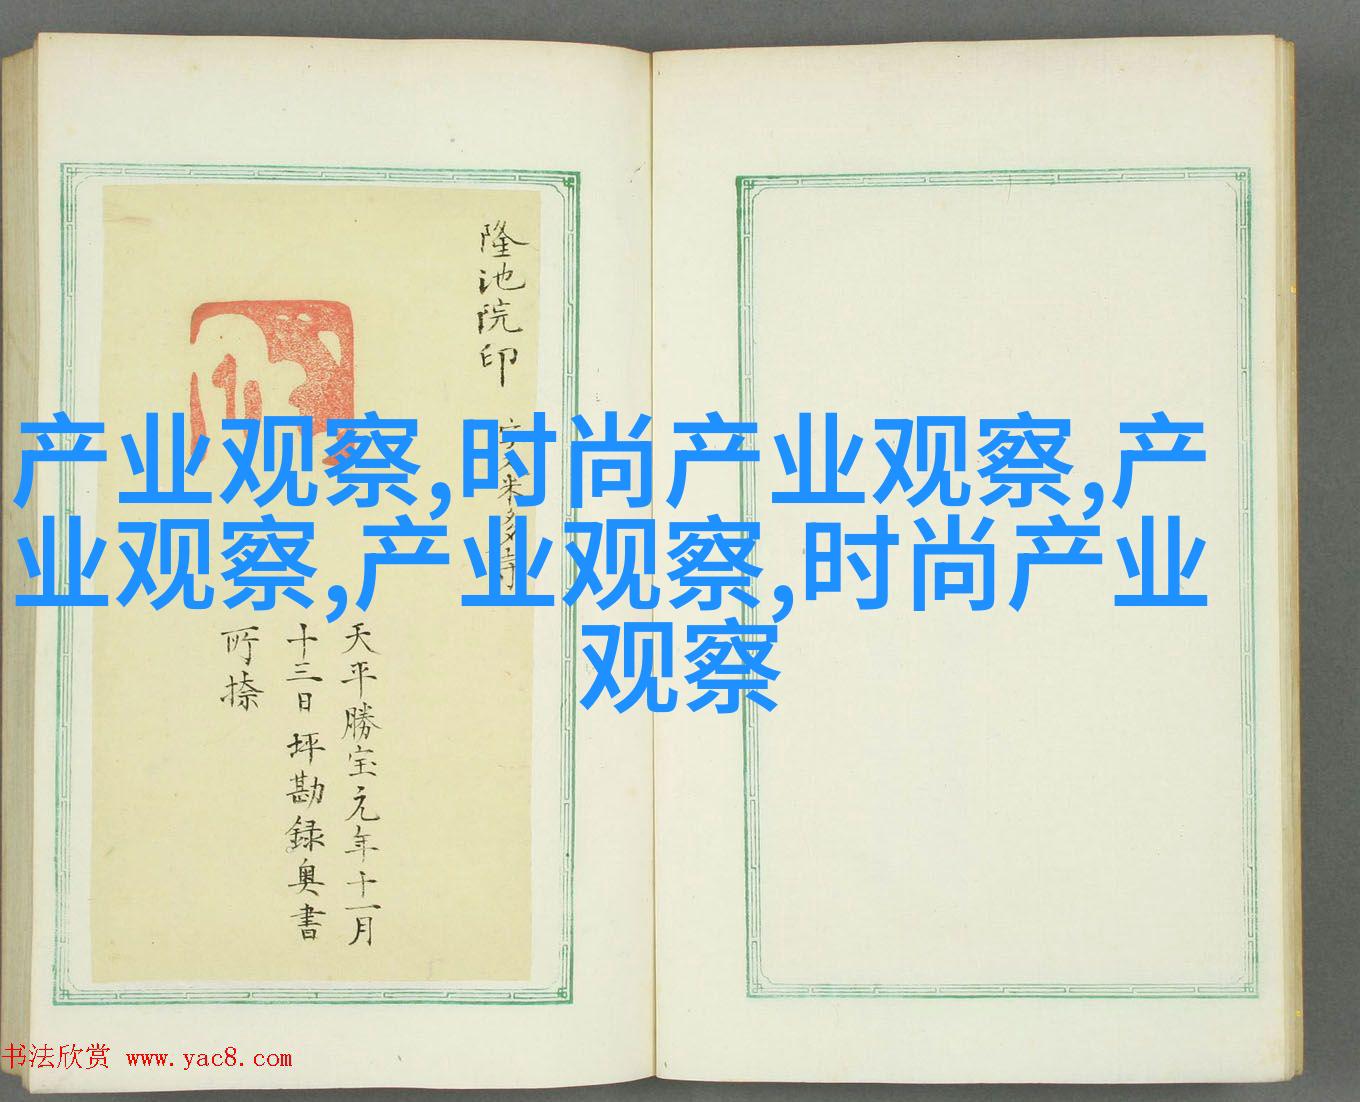 产业观察,时尚产业观察,产
业观察,产业观察,时尚产业
观察
隆池院印
天平勝宝元年十一月
十三日坪勘録奥書
所捺
书法欣赏 www.yac8.com